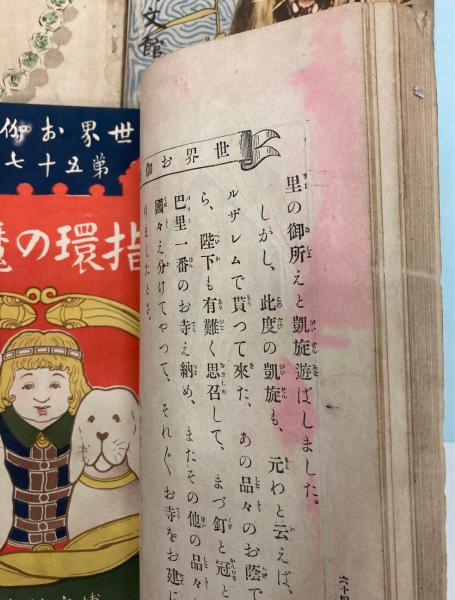 文館
世界お伽
第五十七
魔の指環
世界お伽
里の御所えと凱旋遊ばしました。
しかし、此度の凱旋も、元わと云えば、
ルザレムで貰つて來た、あの品々のお蔭で
ら、陛下も有難く思召して、まづ釘と冠と
巴里一番のお寺え納め、またその他の品々
國々え分けてやつて、それ〲お寺をお建に
りましたとさ。
六十四